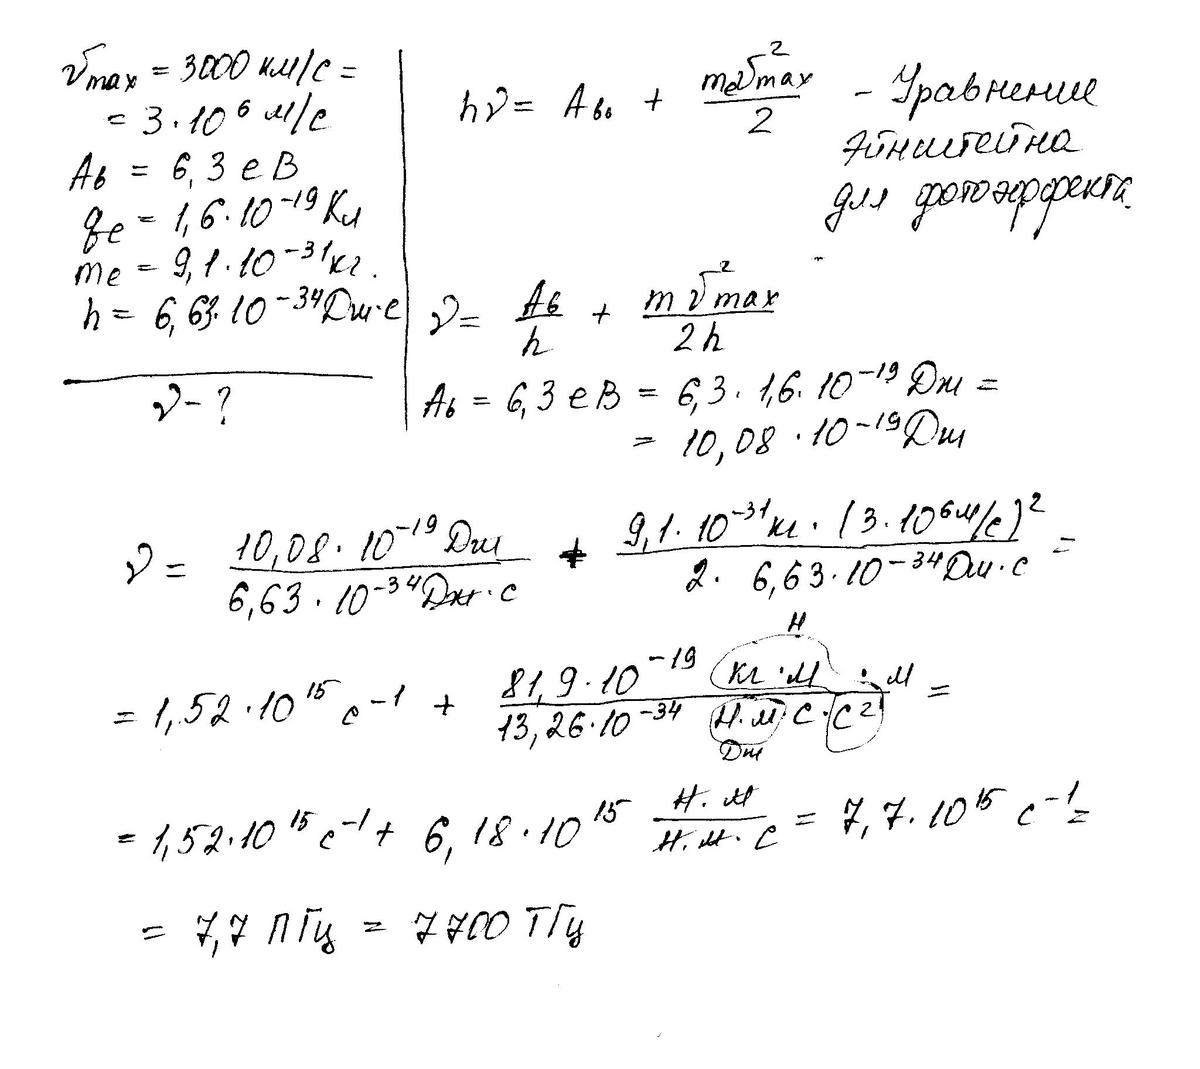 υmax = 3000 км/с =
= 3·10⁶ м/с
Aв = 6,3 еВ
qe = 1,6·10⁻¹⁹ Кл
me = 9,1·10⁻³¹ кг.
h = 6,63·10⁻³⁴ Дж·с
ν - ?
hν = Aв + meυ²max/2 - Уравнение
Эйнштейна
для фотоэффекта.
ν = Aв/h + mυ²max/2h
Aв = 6,3 еВ = 6,3·1,6·10⁻¹⁹ Дж =
= 10,08·10⁻¹⁹ Дж
ν = 10,08·10⁻¹⁹ Дж / 6,63·10⁻³⁴ Дж·с + 9,1·10⁻³¹ кг·(3·10⁶ м/с)² / 2·6,63·10⁻³⁴ Дж·с =
= 1,52·10¹⁵ с⁻¹ + 81,9·10⁻¹⁹ кг·м·м / 13,26·10⁻³⁴ Н·м с·с² =
Н
Дж
= 1,52·10¹⁵ с⁻¹ + 6,18·10¹⁵ Н·м/Н·м·с = 7,7·10¹⁵ с⁻¹ =
= 7,7 ПГц = 7700 ТГц